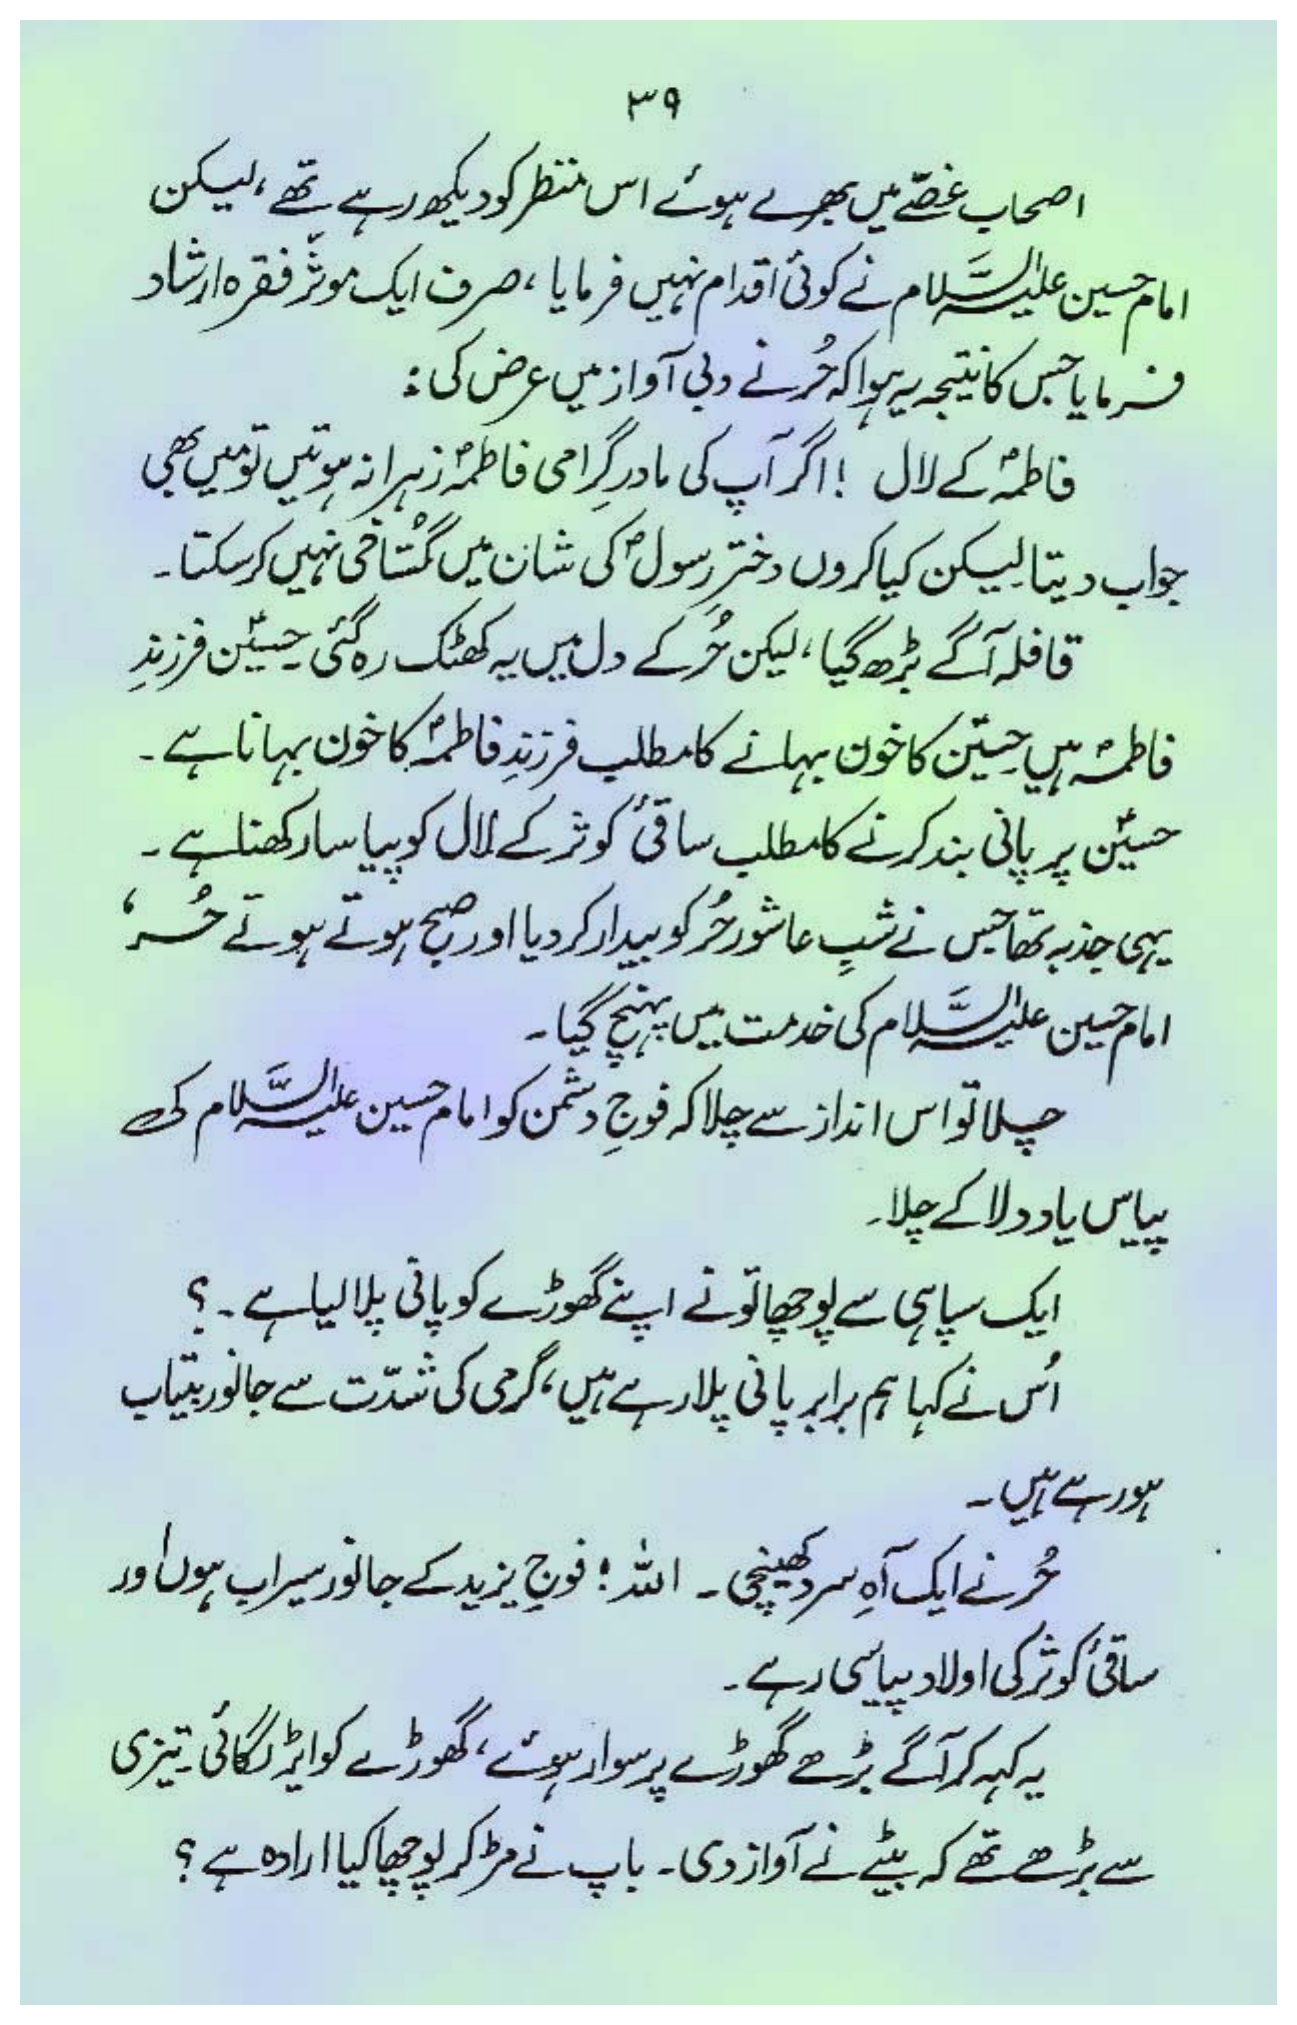 ۳۹
اصحاب غصّے میں بھرے ہوئے اس منظر کو دیکھ رہے تھے، لیکن
امام حسین علیہ السَّلام نے کوئی اقدام نہیں فرمایا، صرف ایک موثّر فقرہ ارشاد
فرمایا جس کا نتیجہ یہ ہوا کہ حُر نے دبی آواز میں عرض کی :
فاطمہؑ کے لال ! اگر آپ کی مادرِ گرامی فاطمہؑ زہرا نہ ہوتیں تو میں بھی
جواب دیتا لیکن کیا کروں دخترِ رسولؐ کی شان میں گستاخی نہیں کر سکتا۔
قافلہ آگے بڑھ گیا، لیکن حُر کے دل میں یہ کھٹک رہ گئی حسینؑ فرزندِ
فاطمہؑ ہیں حسینؑ کا خون بہانے کا مطلب فرزندِ فاطمہؑ کا خون بہانا ہے۔
حسینؑ پر پانی بند کرنے کا مطلب ساقیٔ کوثر کے لال کو پیاسا رکھنا ہے۔
یہی جذبہ تھا جس نے شبِ عاشور حُر کو بیدار کر دیا اور صبح ہوتے ہوتے حُر،
امام حسین علیہ السَّلام کی خدمت میں پہنچ گیا۔
چلا تو اس انداز سے چلا کہ فوجِ دشمن کو امام حسین علیہ السَّلام کی
پیاس یاد دلا کے چلا۔
ایک سپاہی سے پوچھا تو نے اپنے گھوڑے کو پانی پلا لیا ہے۔؟
اُس نے کہا ہم برابر پانی پلا رہے ہیں، گرمی کی شدّت سے جانور بیتاب
ہو رہے ہیں۔
حُر نے ایک آہِ سرد کھینچی۔ اللہ ! فوجِ یزید کے جانور سیراب ہوں اور
ساقیٔ کوثر کی اولاد پیاسی رہے۔
یہ کہہ کر آگے بڑھے گھوڑے پر سوار ہوئے، گھوڑے کو ایڑ لگائی۔ تیزی
سے بڑھے تھے کہ بیٹے نے آواز دی۔ باپ نے مڑ کر پوچھا کیا ارادہ ہے ؟